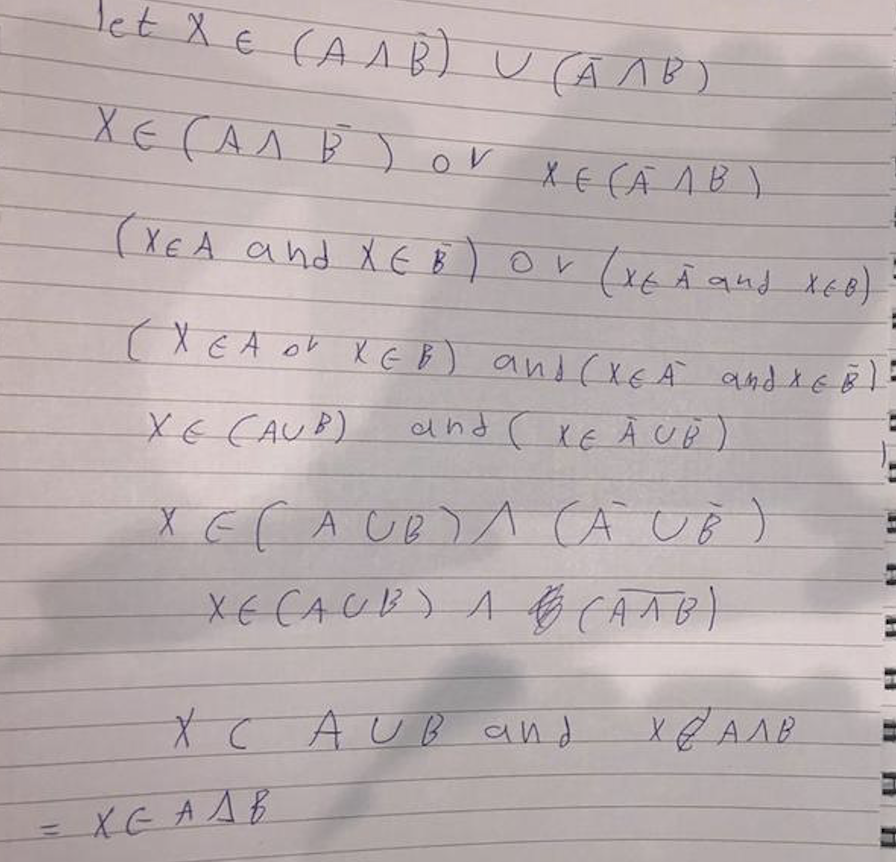 let X ∈ (A ∧ B̄) ∪ (Ā ∧ B)
X ∈ (A ∧ B̄) or X ∈ (Ā ∧ B)
(X ∈ A and X ∈ B̄) or (X ∈ Ā and X ∈ B)
(X ∈ A or X ∈ B) and (X ∈ Ā and X ∈ B̄)
X ∈ (A ∪ B) and ( X ∈ Ā ∪ B̄ )
X ∈ ( A ∪ B ) ∧ ( Ā ∪ B̄ )
X ∈ (A ∪ B) ∧ (A̅ ∧̅ B̅)
X ⊂ A ∪ B and X ∉ A ∧ B
= X ∈ A Δ B